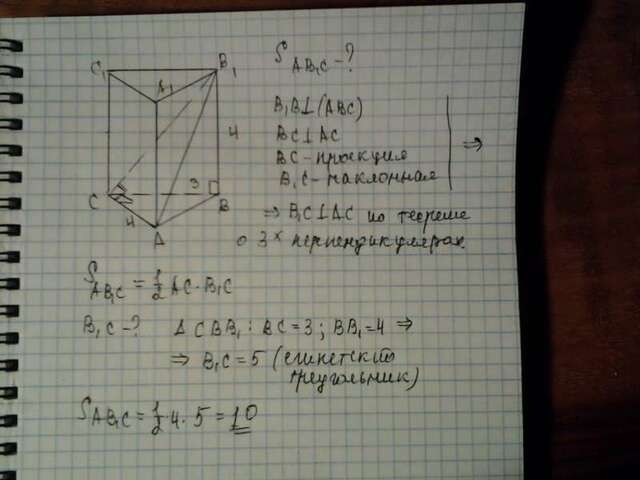 C₁ B₁
A₁
4
3
C B
4
A
S AB₁C - ?
B₁B⊥(ABC)
BC⊥AC
BC - проекция
B₁C - наклонная
⇒
⇒ B₁C⊥AC по теореме
о 3ˣ перпендикулярах
S AB₁C = 1/2 AC · B₁C
B₁C - ? Δ CBB₁ : BC = 3 ; BB₁ = 4 ⇒
⇒ B₁C = 5 (египетский
треугольник)
S AB₁C = 1/2 · 4 · 5 = 10